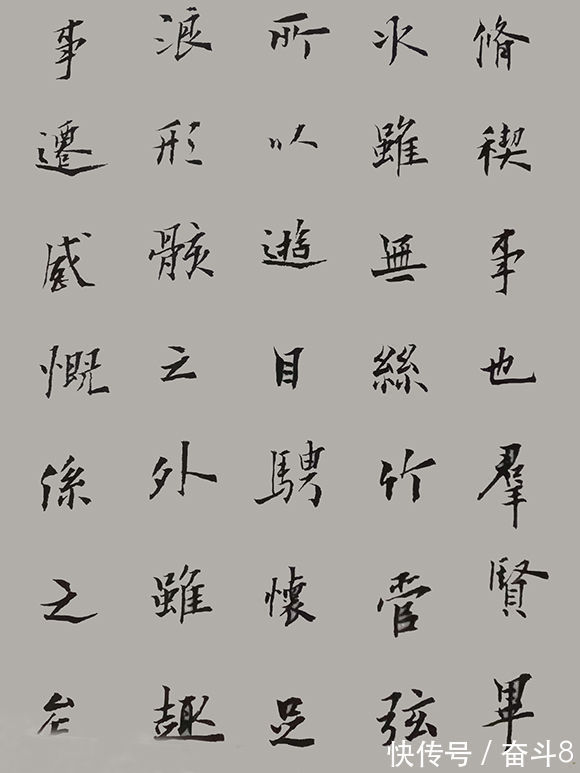 脩禊事也羣賢畢
次雖無絲竹管弦
所以遊目騁懷足
浪形骸之外雖趣
事遷感慨係之矣
快传号 / 奋斗8